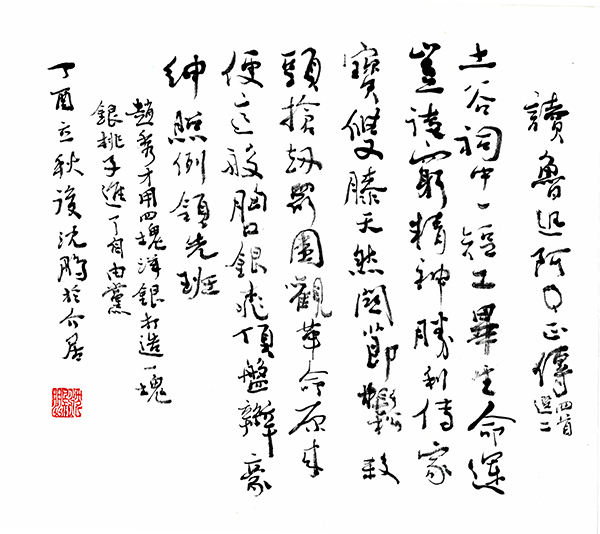 讀魯迅阿Q正傳 四首選二
土谷祠中一短工畢生命運
豈窮精神勝利傳家
寶雙膝天然關節鬆 殺
頭搶劫圍觀革命原來
便這般胸口銀桃頂盤辮豪
紳照例領先班
趙秀才用四塊洋銀打造一塊
銀桃子進了自由黨
丁酉立秋後沈鵬於介居